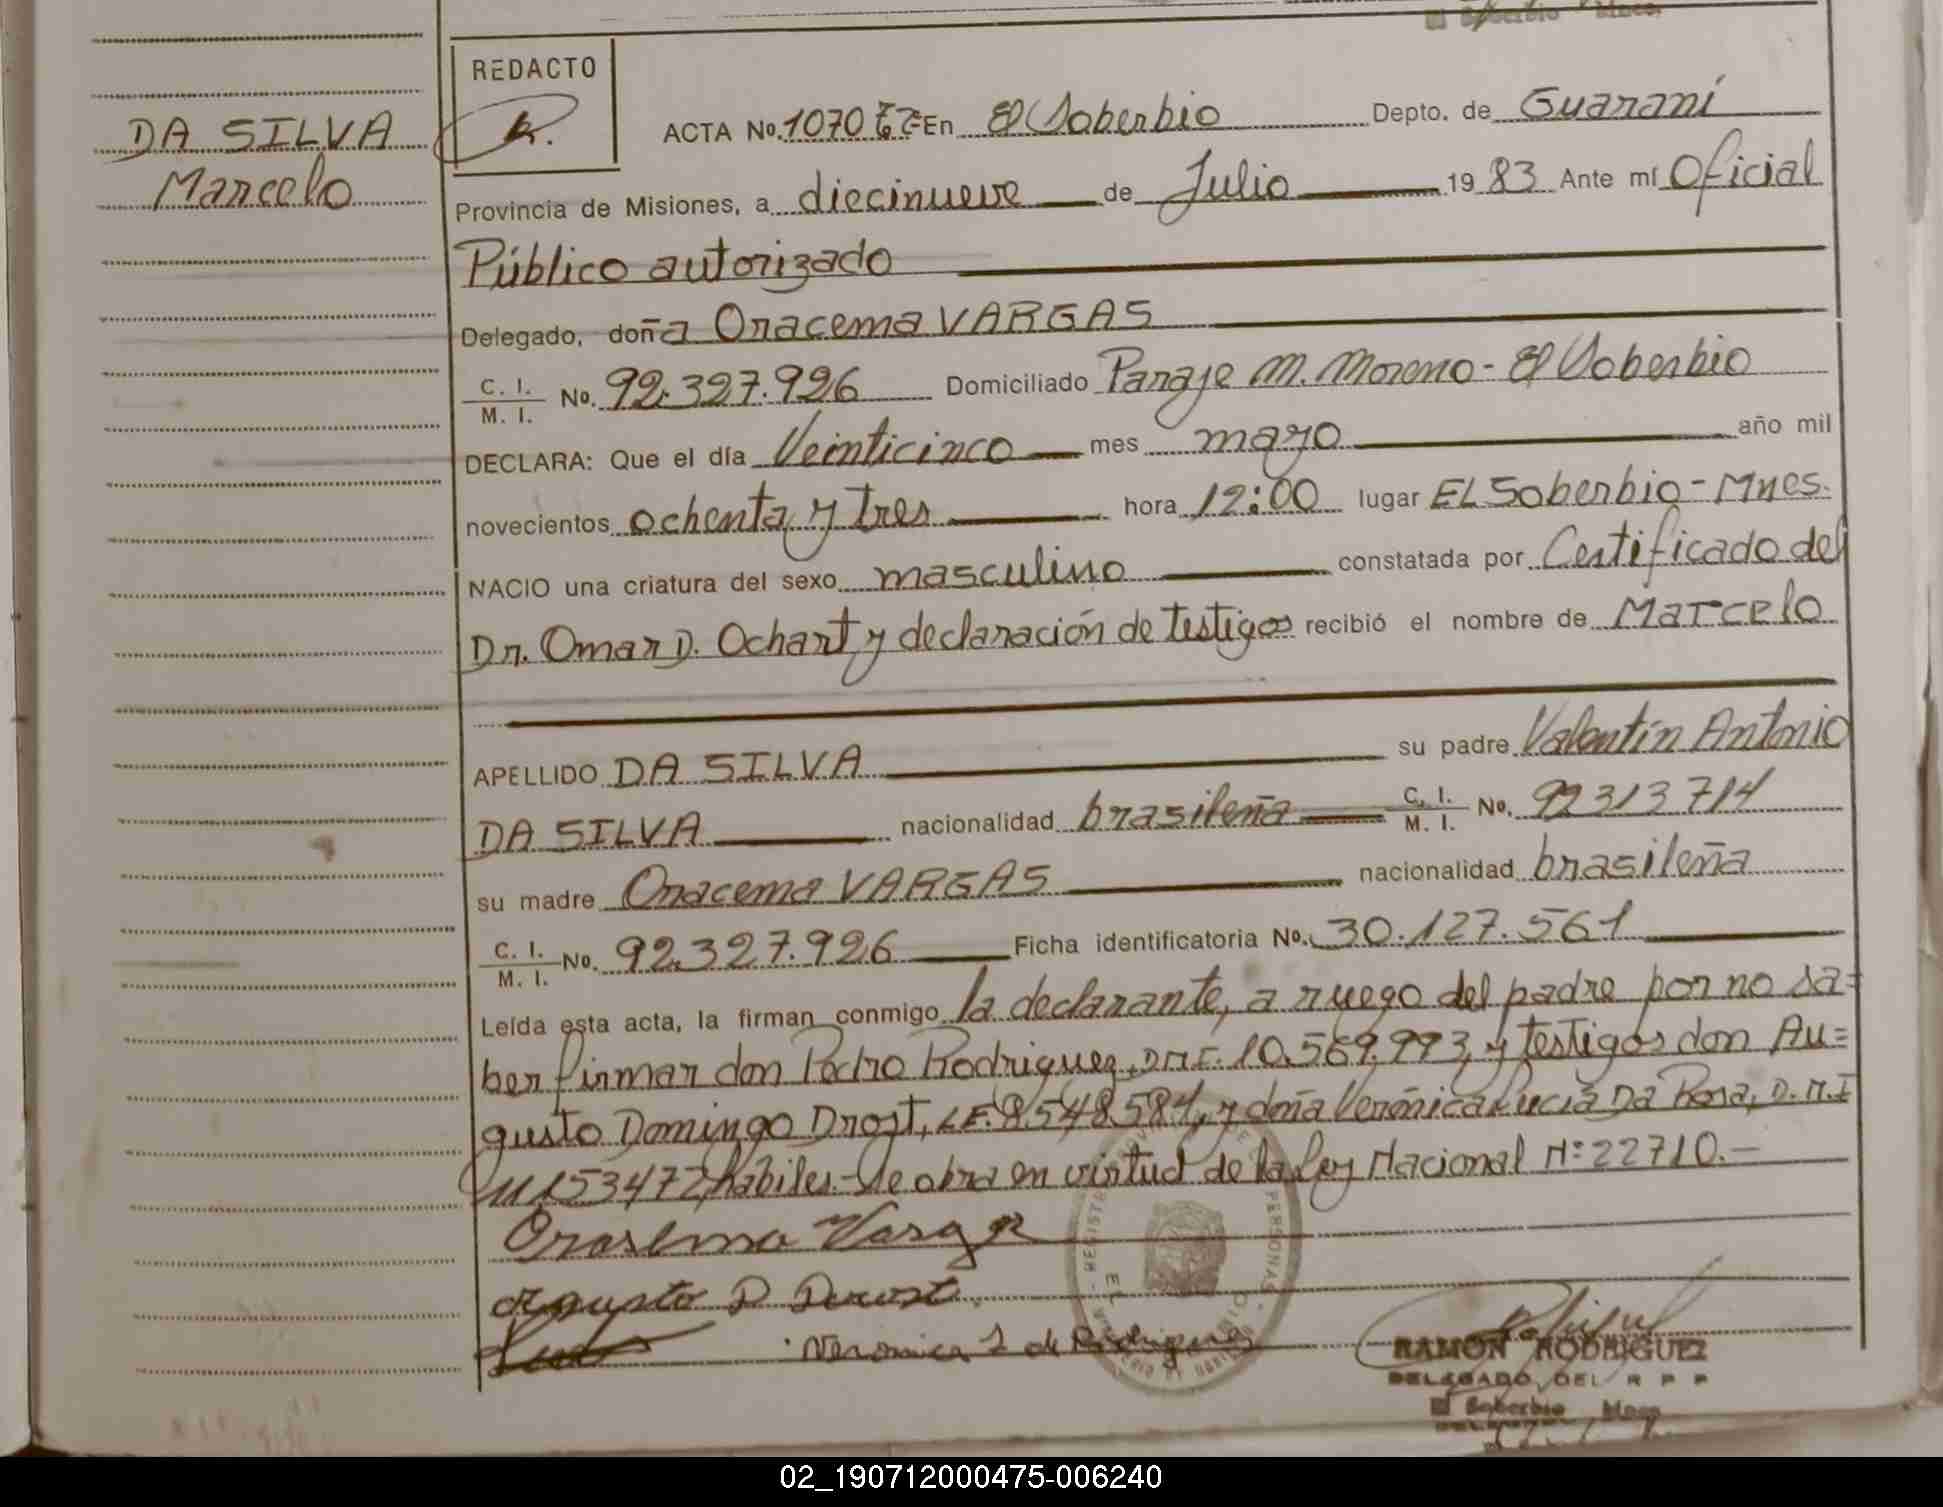 El Soberbio Mnes.
REDACTO
DA SILVA
Marcelo
ACTA No. 1070 En El Soberbio Depto. de Guaraní
Provincia de Misiones, a diecinueve de Julio 1983 Ante mí Oficial
Público autorizado
Delegado, doña Oracema VARGAS
C. I. / M. I. No. 92.327.926 Domiciliado Paraje M. Moreno - El Soberbio
DECLARA: Que el día Veinticinco mes mayo año mil
novecientos ochenta y tres hora 12:00 lugar EL Soberbio - Mnes.
NACIO una criatura del sexo masculino constatada por Certificado del
Dr. Omar D. Ochart y declaración de testigos recibió el nombre de Marcelo
APELLIDO DA SILVA su padre Valentín Antonio
DA SILVA nacionalidad brasileña C. I. / M. I. No. 92313714
su madre Oracema VARGAS nacionalidad brasileña
C. I. / M. I. No. 92.327.926 Ficha identificatoria No. 30.127.561
Leída esta acta, la firman conmigo la declarante, a ruego del padre por no sa=
ber firmar don Pedro Rodriguez, D.N.I. 10.569.993, y testigos don Au=
gusto Domingo Drost, L.E. 8548584, y doña Verónica Lucia Da Rosa, D.N.I
11153472, hábiles.- Se obra en virtud de la Ley Nacional N: 22710.-
Orasema Vargas
Agusto D Derost.
Veronica L de Rodriguez
RAMON RODRIGUEZ
DELEGADO DEL R P P
El Soberbio Mnes.
02_190712000475-006240